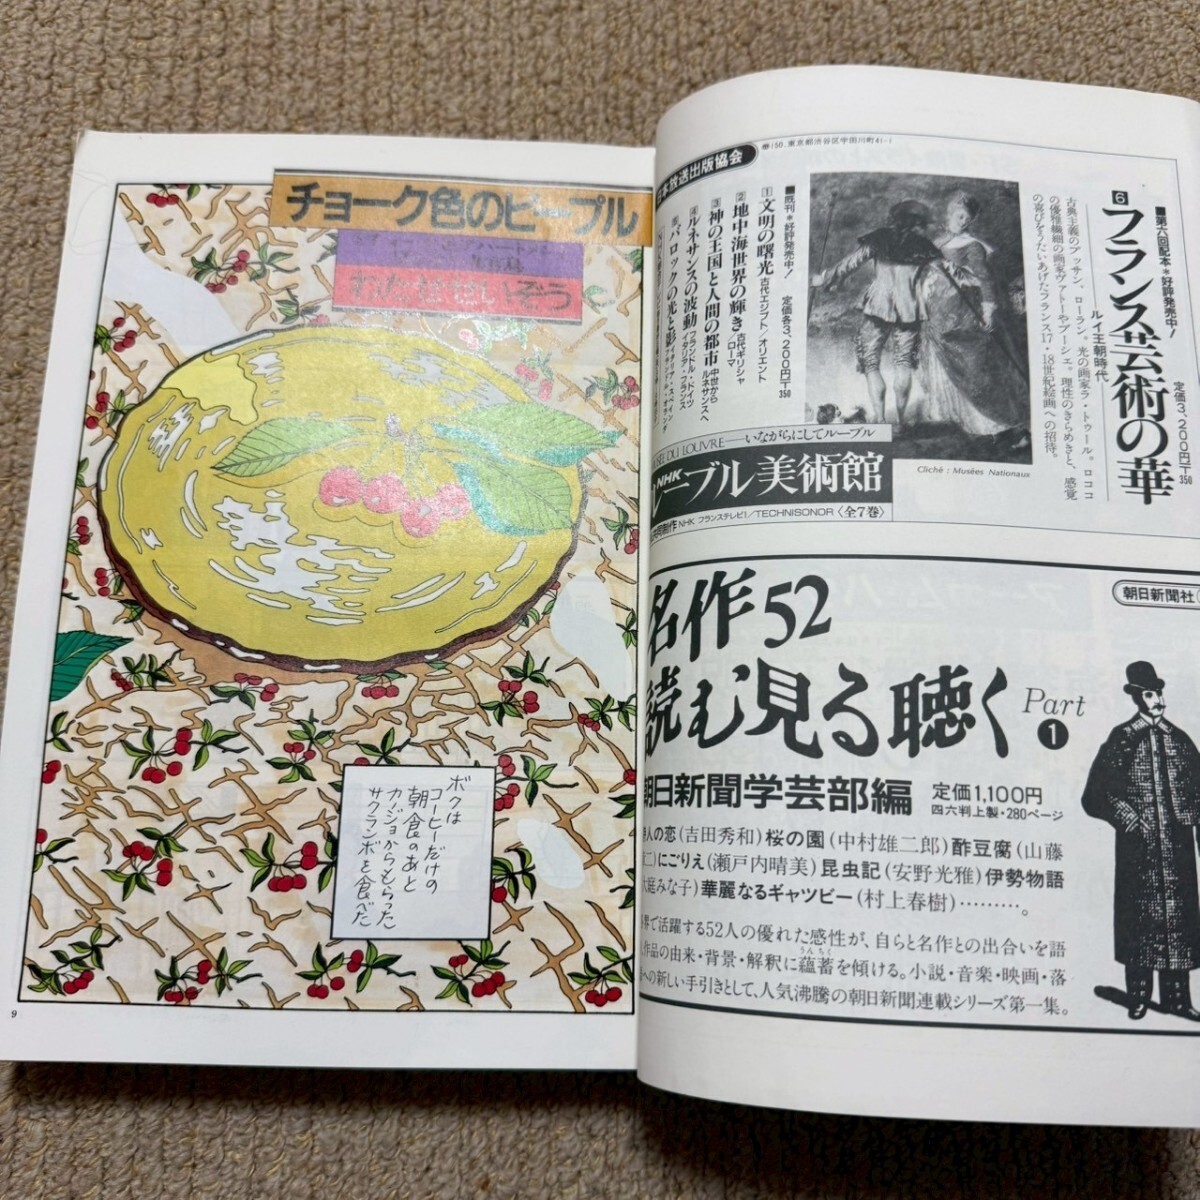 チョーク色のピープル
わたせせいぞう
ボクは
コーヒーだけの
朝食のあと
カジョからもらった
サクランボを食べた
9
本放送出版協会
〒150、東京都渋谷区宇田川町41-1
■第六回配本*好評発売中!
6 フランス芸術の華
定価3,200円〒350
ルイ王朝時代
古典主義のプッサン、ローラン。光の画家ラ・トゥール。ロココ
の優雅繊細の画家ヴァトーやブーシェ。理性のきらめきと、感覚
の喜びをうたいあげたフランス17・18世紀絵画への招待。
Cliché : Musées Nationaux
■既刊*好評発売中!
定価各3,200円〒350
1 文明の曙光 古代エジプト/オリエント
2 地中海世界の輝き 古代ギリシャ/ローマ
3 神の王国と人間の都市 中世からルネサンスへ
4 ルネサンスの波動 フランドル・ドイツ イタリア・フランス
5 バロックの光と影
SÉE DU LOUVRE──いながらにしてルーブル
NHK ルーブル美術館
共同制作 NHK フランステレビ1/TECHNISONOR〈全7巻〉
朝日新聞社
名作52
読む見る聴く Part 1
朝日新聞学芸部編
定価1,100円
四六判上製・280ページ
人の恋(吉田秀和)桜の園(中村雄二郎)酢豆腐(山藤
二)にごりえ(瀬戸内晴美)昆虫記(安野光雅)伊勢物語
大庭みな子)華麗なるギャツビー(村上春樹)………。
界で活躍する52人の優れた感性が、自らと名作との出合いを語
作品の由来・背景・解釈に蘊蓄を傾ける。小説・音楽・映画・落
への新しい手引きとして、人気沸騰の朝日新聞連載シリーズ第一集。